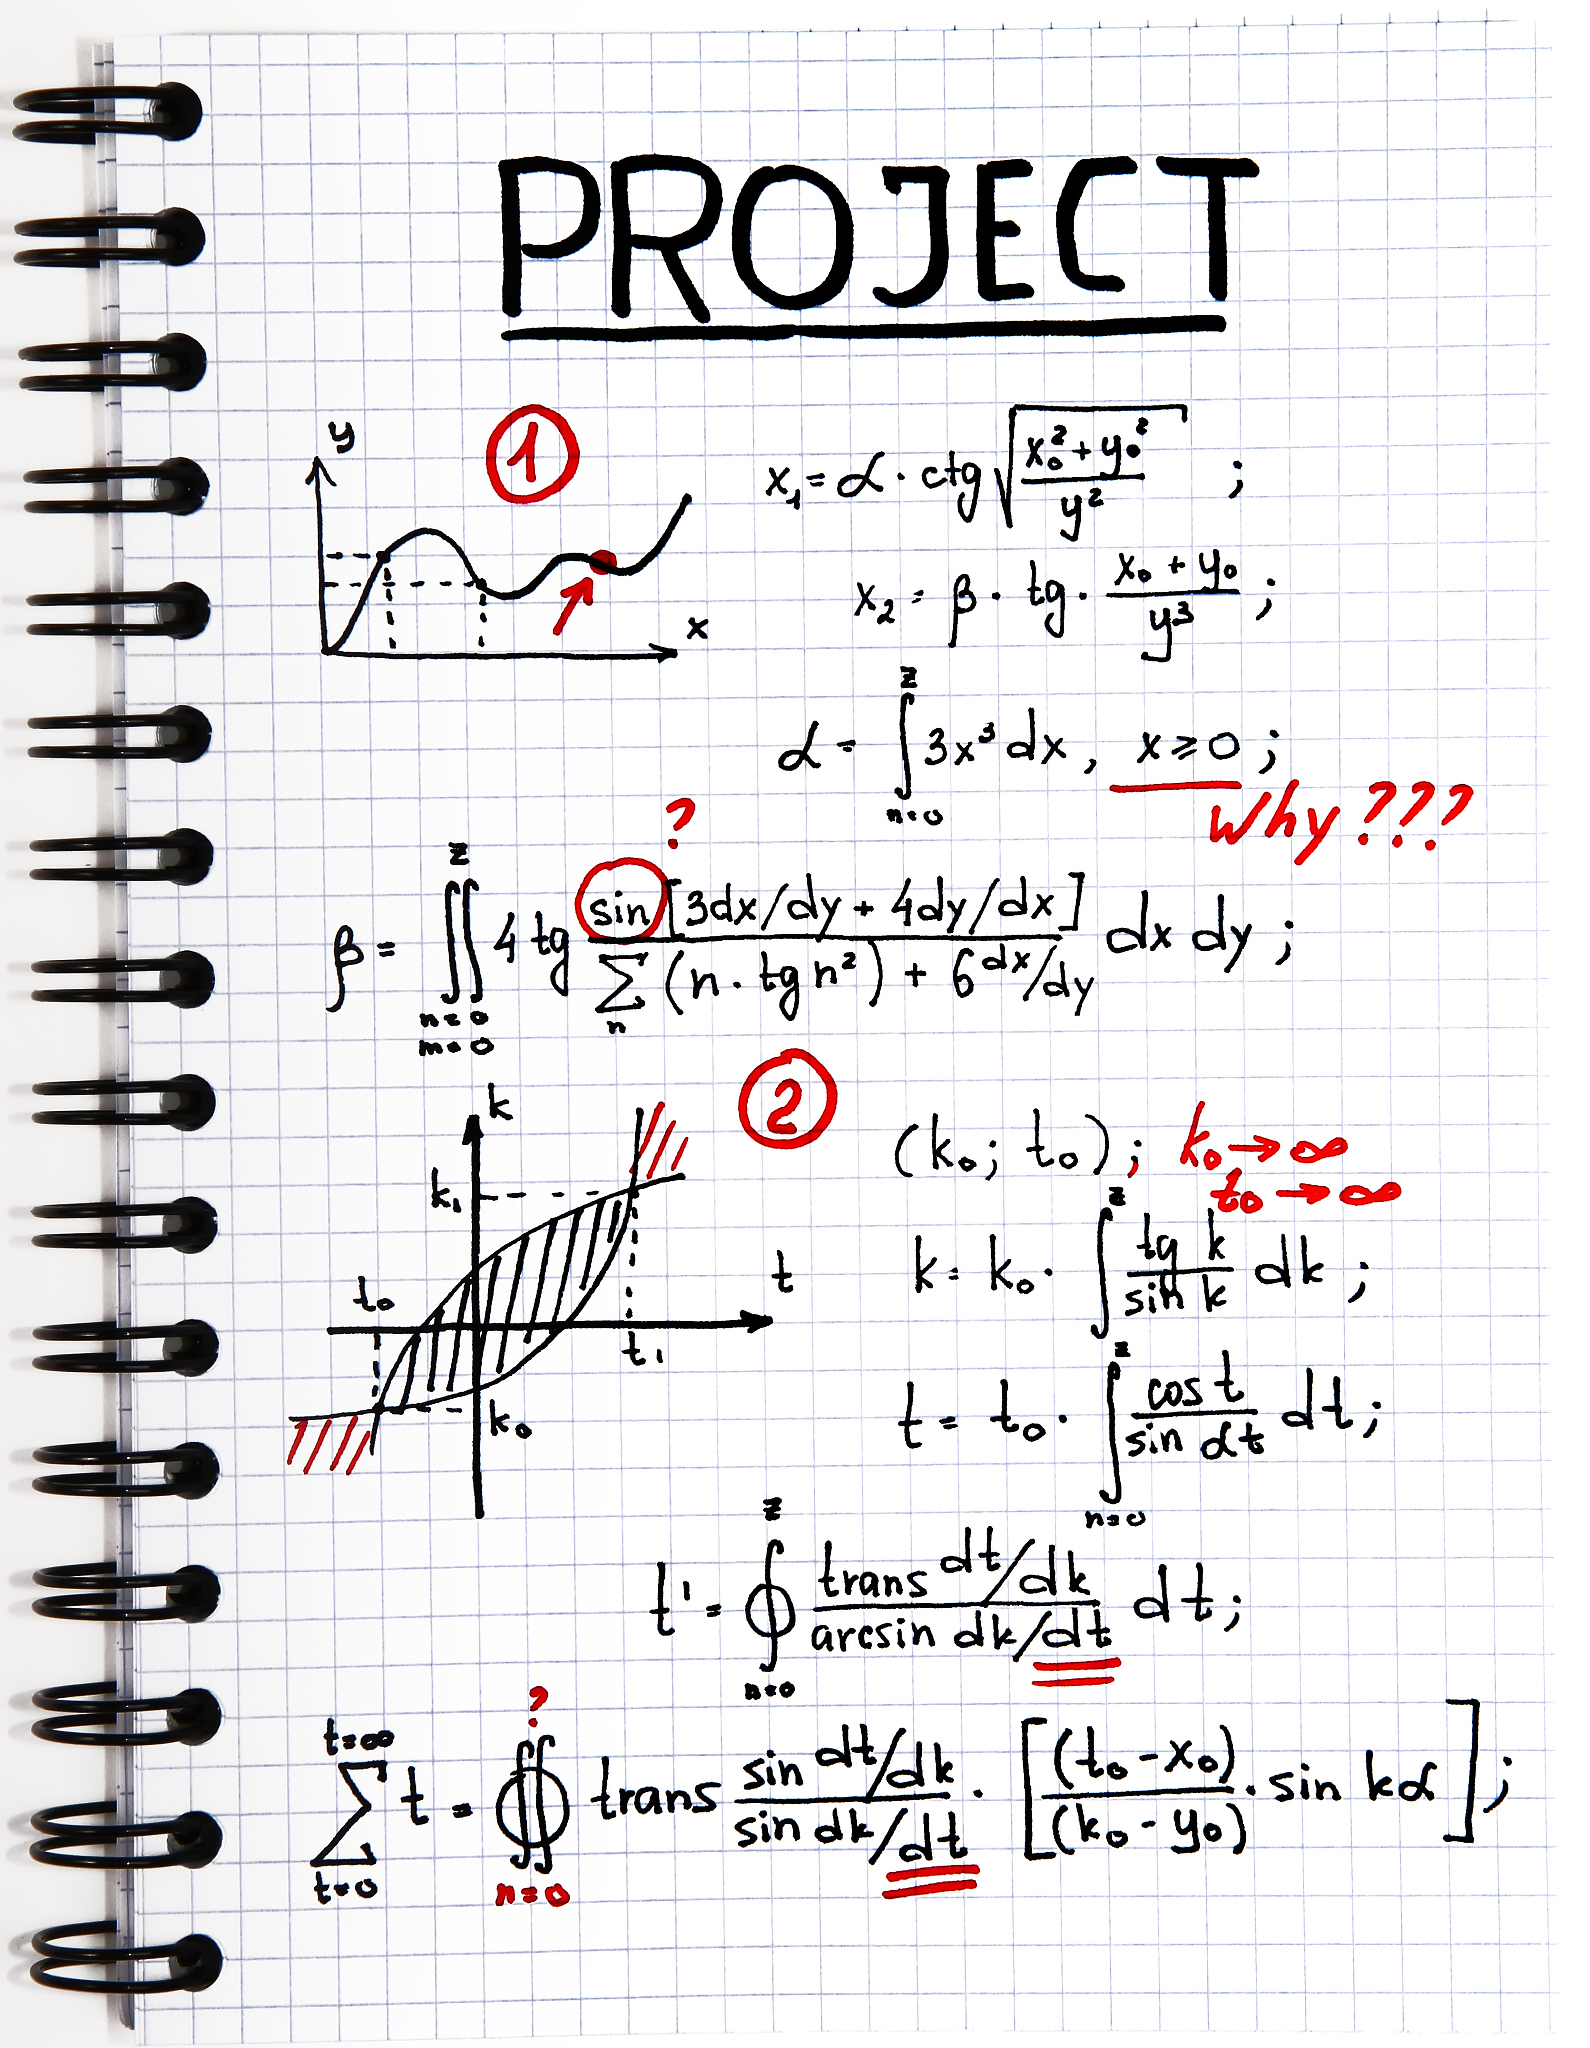 PROJECT
1
y
x
x₁ = α · ctg √((x₀² + y₀²)/y²) ;
x₂ = β · tg · (x₀ + y₀)/y³ ;
z
α = ∫ 3x³ dx, x ⩾ 0 ;
n=0
Why???
?
z
β = ∬ 4 tg (sin [3dx/dy + 4dy/dx])/(∑ₙ (n · tg n²) + 6^dx/dy) dx dy ;
n=0
m=0
2
k
k₁
t
t₀
t₁
k₀
(k₀; t₀); k₀ → ∞
t₀ → ∞
z
k = k₀ · ∫ (tg k)/(sin k) dk ;
z
t = t₀ · ∫ (cos t)/(sin αt) dt ;
n=0
z
t' = ∮ (trans dt/dk)/(arcsin dk/dt) dt ;
n=0
?
t=∞
∑ t = ∯ trans (sin dt/dk)/(sin dk/dt) · [(t₀ - x₀)/(k₀ - y₀) · sin kα] ;
t=0
n=0